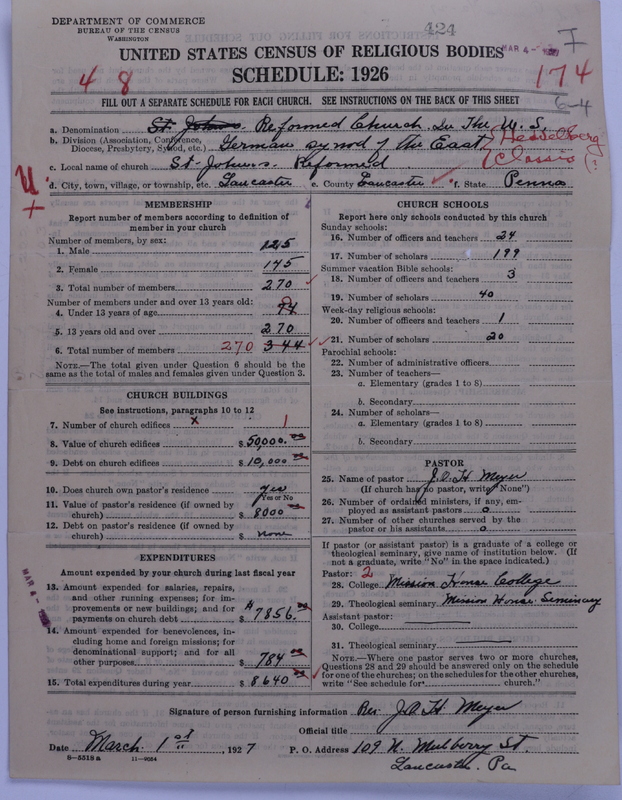 DEPARTMENT OF COMMERCE
BUREAU OF THE CENSUS
WASHINGTON
424
MAR 4-
I
UNITED STATES CENSUS OF RELIGIOUS BODIES
SCHEDULE: 1926
4 8
174
FILL OUT A SEPARATE SCHEDULE FOR EACH CHURCH. SEE INSTRUCTIONS ON THE BACK OF THIS SHEET
6-4
a. Denomination St. John's Reformed Church In The U. S.
b. Division (Association, Conference, Diocese, Presbytery, Synod, etc.) German synod of the East (Heidelberg
(Classis)
c. Local name of church St. John's Reformed
d. City, town, village, or township, etc. Lancaster e. County Lancaster f. State Penna
MEMBERSHIP
Report number of members according to definition of
member in your church
Number of members, by sex:
1. Male 125
2. Female 145
3. Total number of members 270
Number of members under and over 13 years old:
4. Under 13 years of age 74 0
5. 13 years old and over 270
6. Total number of members 270 344
NOTE.—The total given under Question 6 should be
same as the total of males and females given under Question 3.
CHURCH BUILDINGS
See instructions, paragraphs 10 to 12
7. Number of church edifices x 1
8. Value of church edifices $ 50,000.00
9. Debt on church edifices $ 10,000 00
10. Does church own pastor's residence yes
Yes or No
11. Value of pastor's residence (if owned by
church) $ 8000 00
12. Debt on pastor's residence (if owned by
church) $ none
EXPENDITURES
Amount expended by your church during last fiscal year
MAR 4-
13. Amount expended for salaries, repairs,
and other running expenses; for im-
provements or new buildings; and for
payments on church debt $ 7856.00
14. Amount expended for benevolences, in-
cluding home and foreign missions; for
denominational support; and for all
other purposes $ 784 00
15. Total expenditures during year $ 8640 00
CHURCH SCHOOLS
Report here only schools conducted by this church
Sunday schools:
16. Number of officers and teachers 24
17. Number of scholars 199
Summer vacation Bible schools:
18. Number of officers and teachers 3
19. Number of scholars 40
Week-day religious schools:
20. Number of officers and teachers 1
21. Number of scholars 20
Parochial schools:
22. Number of administrative officers
23. Number of teachers—
a. Elementary (grades 1 to 8)
b. Secondary
24. Number of scholars—
a. Elementary (grades 1 to 8)
b. Secondary
PASTOR
25. Name of pastor J. O. H. Meyer
(If church has no pastor, write "None")
26. Number of ordained ministers, if any, em-
ployed as assistant pastors 0
27. Number of other churches served by the
pastor or his assistants 0
If pastor (or assistant pastor) is a graduate of a college or
theological seminary, give name of institution below. (If
not a graduate, write "No" in the space indicated.)
Pastor: 2
28. College Mission House College
29. Theological seminary Mission House Seminary
Assistant pastor:
30. College
31. Theological seminary
NOTE.—Where one pastor serves two or more churches,
Questions 28 and 29 should be answered only on the schedule
for one of the churches; on the schedules for the other churches,
write "See schedule for church."
Signature of person furnishing information Rev. J. O. H. Meyer
Official title
Date March 1 st, 1927 P. O. Address 109 N. Mulberry St.
Lancaster. Pa
6—5518 a 11—9054